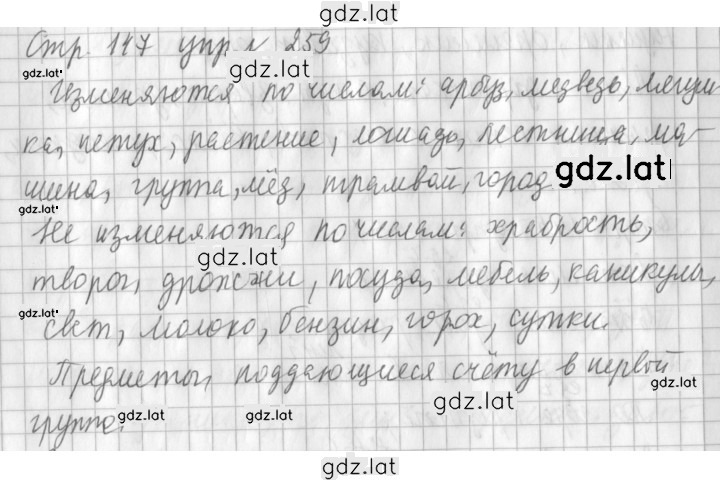 gdz.lat
Стр. 117 упр. 259
gdz.lat gdz.lat
Изменяются по числам: арбуз, медведь, лягуш
ка, петух, растение, лошадь, лестница, ма-
gdz.lat
шина, группа, мёд, трамвай, город
gdz.lat
Не изменяются по числам: храбрость,
gdz.lat
творог, дрожжи, посуда, мебель, каникулы,
gdz.lat
свет, молоко, бензин, горох, сутки.
Предметы, поддающиеся счёту в первой
gdz.lat
группе.
gdz.lat gdz.lat gdz.lat
gdz.lat